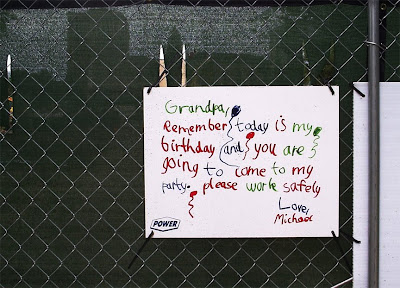 Grandpa,
Remember today is my
birthday and you are
going to come to my
party. please work safely
Love,
Michael
POWER